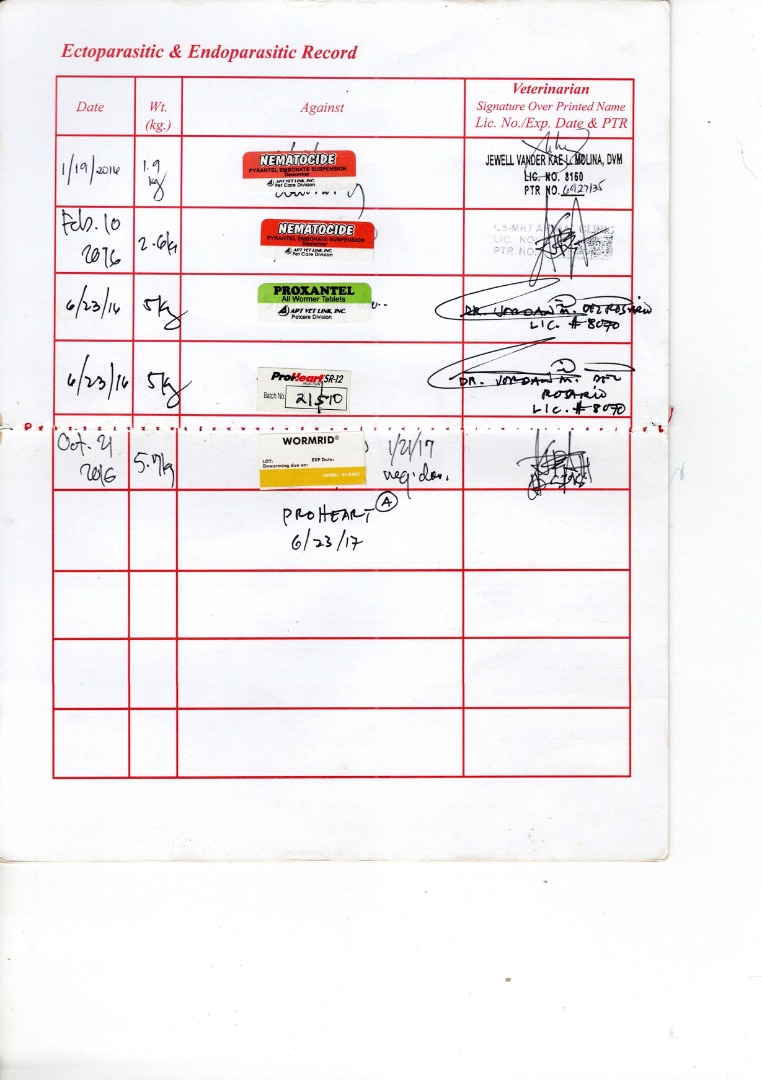 Ectoparasitic & Endoparasitic Record
Date
Wt.
(kg.)
Against
Veterinarian
Signature Over Printed Name
Lic. No./Exp. Date & PTR
1/19/2016
1.9
kg
NEMATOCIDE
PYRANTEL EMBONATE SUSPENSION
Dewormer
APT VET LINK, INC.
Pet Care Division
JEWELL VANDER KAE L. MOLINA, DVM
LIC. NO. 8160
PTR NO.
Feb. 10
2016
2.6kg
NEMATOCIDE
PYRANTEL EMBONATE SUSPENSION
Dewormer
APT VET LINK, INC.
Pet Care Division
LIC. NO.
PTR NO.
6/23/16
5kg
PROXANTEL
All Wormer Tablets
APT VET LINK, INC.
Petcare Division
DR. JORDAN M. DEL ROSARIO
LIC. # 8070
6/23/16
5kg
ProHeart SR-12
Batch No. 21510
DR. JORDAN M. DEL
ROSARIO
LIC. # 8070
Oct. 21
2016
5.7kg
WORMRID®
LOT: EXP Date:
Deworming due on:
ANIMAL SCIENCE
1/21/17
PROHEART A
6/23/17